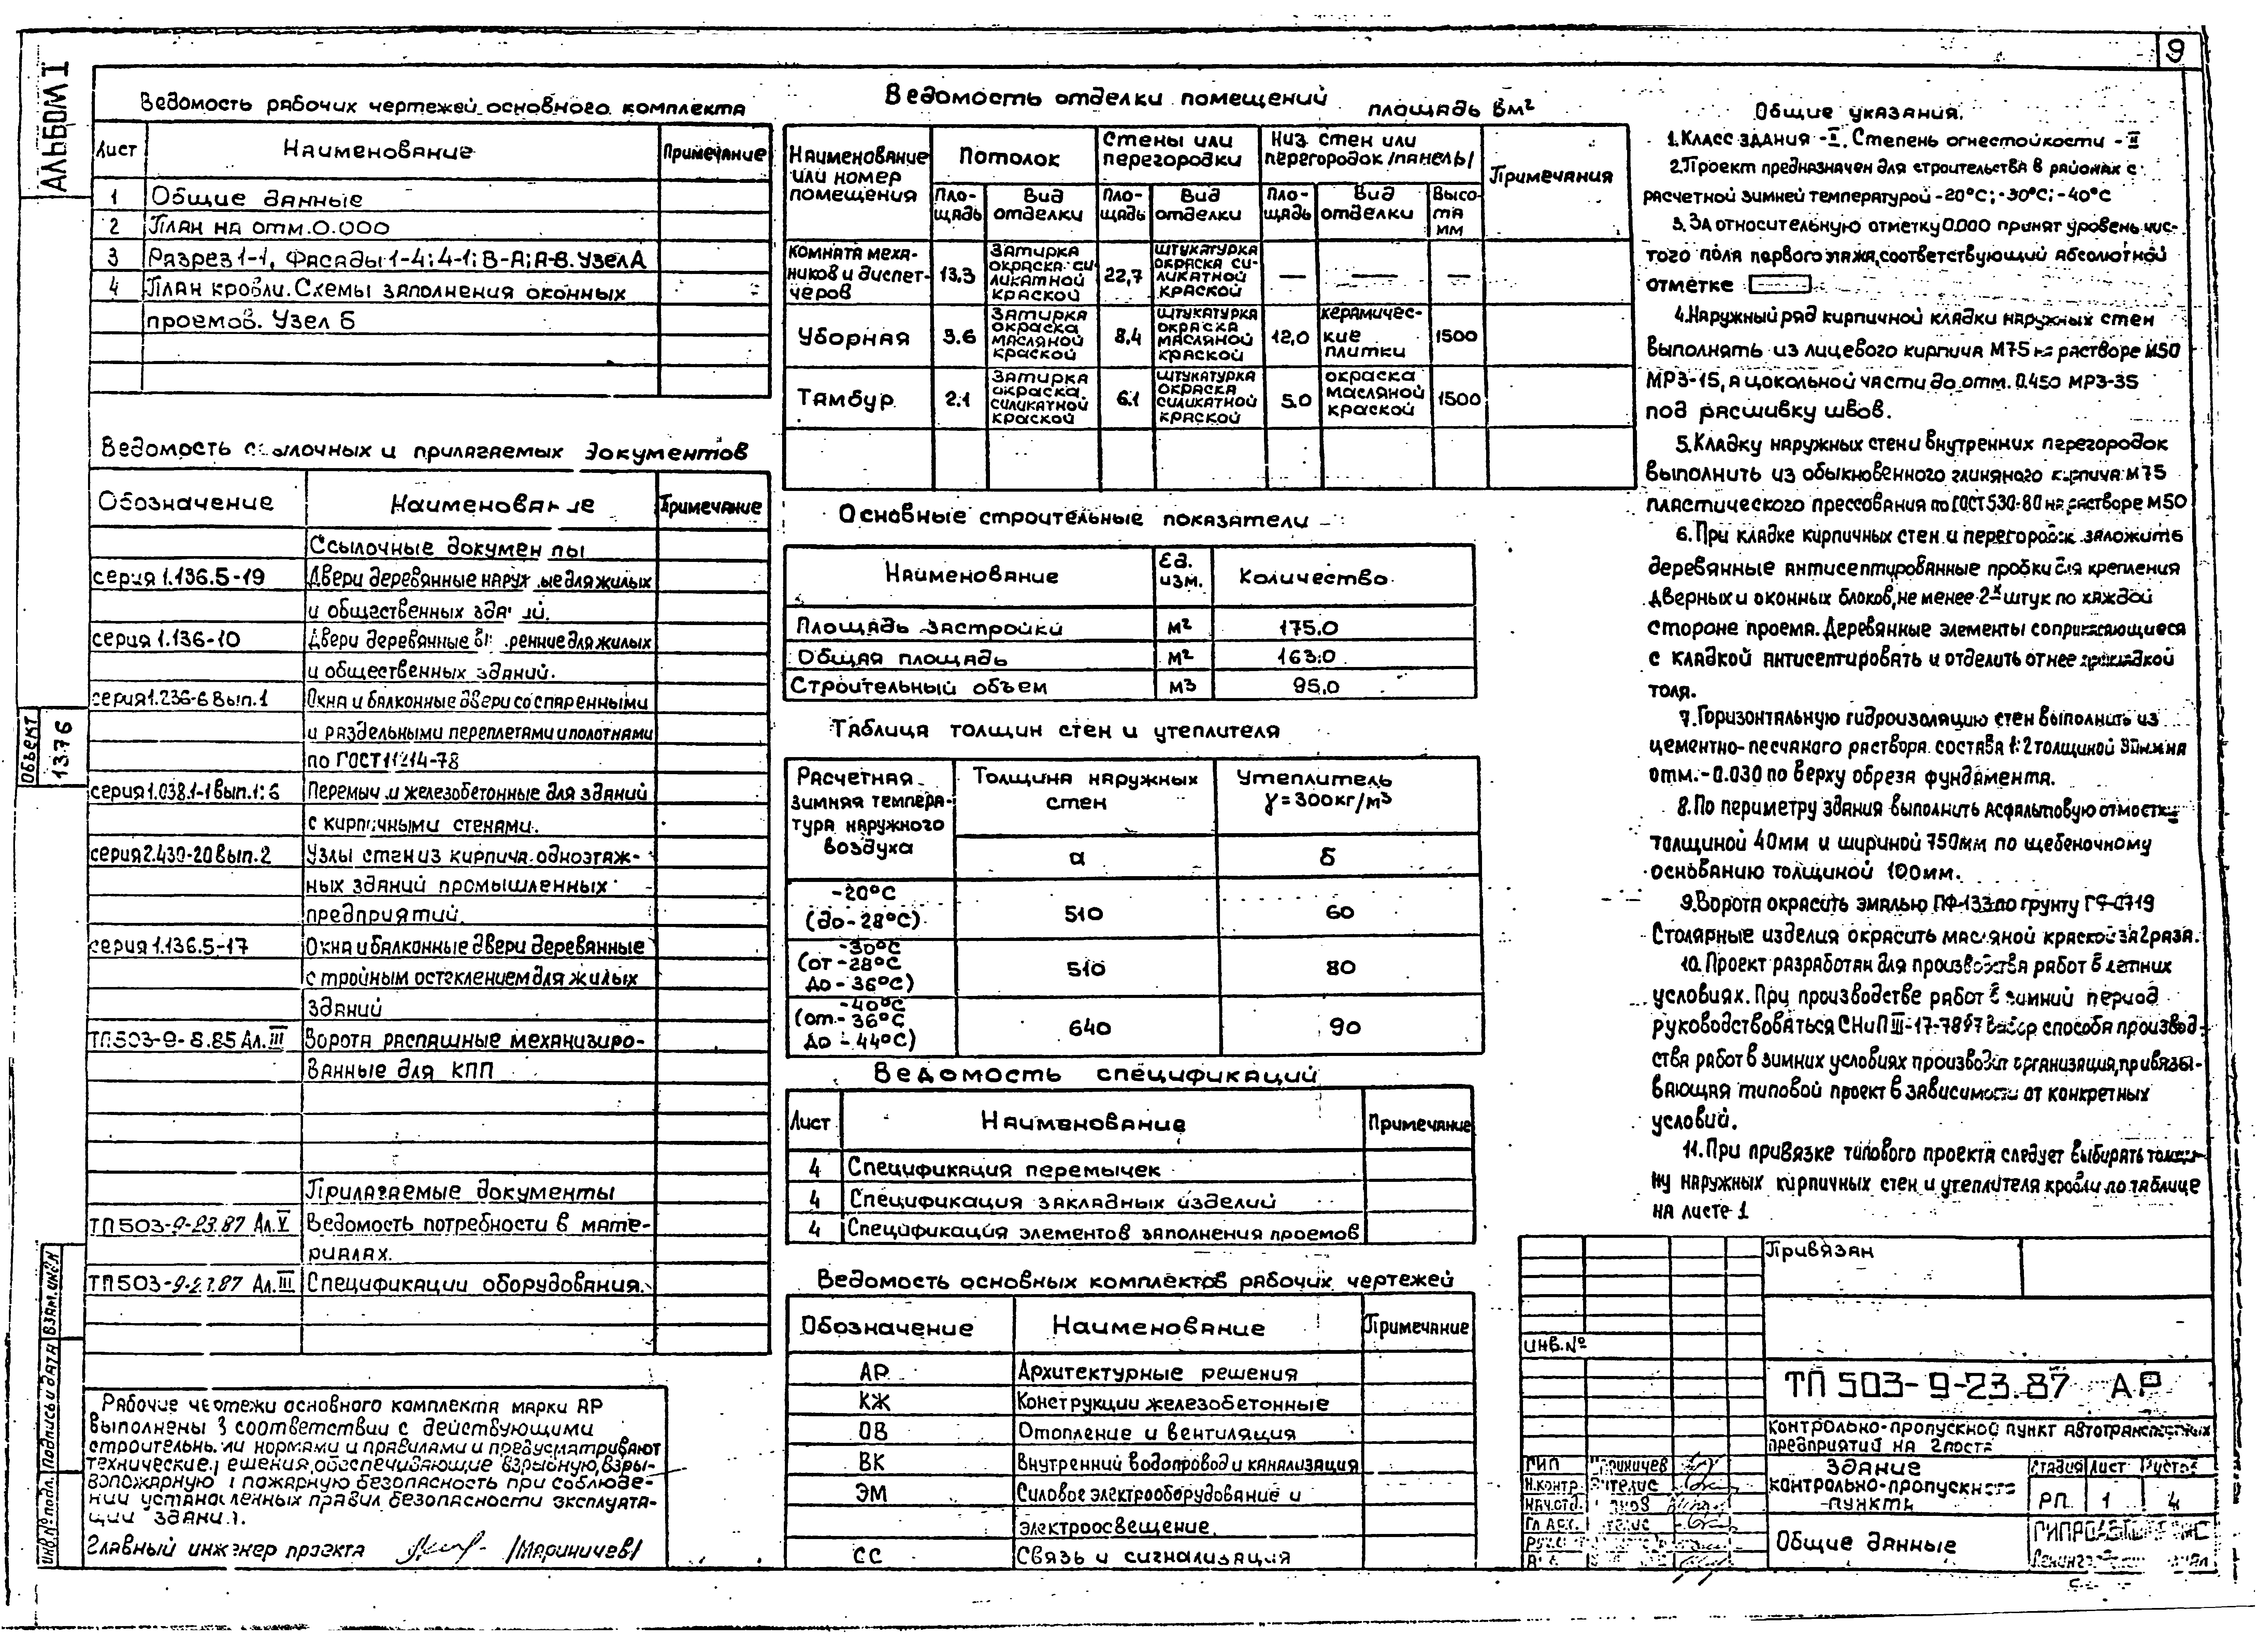 9
АЛЬБОМ I
Ведомость рабочих чертежей основного комплекта
Лист Наименование Примечание
1 Общие данные
2 План на отм. 0.000
3 Разрез 1-1, Фасады 1-4; 4-1; В-А; А-В. Узел А
4 План кровли. Схемы заполнения оконных
проемов. Узел Б
Ведомость ссылочных и прилагаемых документов
Обозначение Наименование Примечание
Ссылочные документы
серия 1.136.5-19 Двери деревянные наружные для жилых
и общественных зданий.
серия 1.136-10 Двери деревянные внутренние для жилых
и общественных зданий.
серия 1.236-6 Вып.1 Окна и балконные двери со спаренными
и раздельными переплетами и полотнами
по ГОСТ 11214-78
серия 1.038.1-1 вып.1; 6 Перемычки железобетонные для зданий
с кирпичными стенами.
серия 2.430-20 Вып.2 Узлы стен из кирпича одноэтаж-
ных зданий промышленных
предприятий.
серия 1.136.5-17 Окна и балконные двери деревянные
с тройным остеклением для жилых
зданий
ТП 503-9-8.85 Ал.III Ворота распашные механизиро-
ванные для КПП
Прилагаемые документы
ТП 503-9-23.87 Ал.V Ведомость потребности в мате-
риалах.
ТП 503-9-23.87 Ал.III Спецификации оборудования.
Рабочие чертежи основного комплекта марки АР
выполнены в соответствии с действующими
строительными нормами и правилами и предусматривают
технические решения, обеспечивающие взрывную, взры-
вопожарную и пожарную безопасность при соблюде-
нии установленных правил безопасности эксплуата-
ции здания.
Главный инженер проекта /Мариничев/
Ведомость отделки помещений площадь в м²
Наименование или номер помещения Потолок Стены или перегородки Низ стен или перегородок /панель/ Примечания
Пло-щадь Вид отделки Пло-щадь Вид отделки Пло-щадь Вид отделки Высо-та мм
Комната меха-ников и диспет-черов 13.3 Затирка окраска си-ликатной краской 22,7 штукатурка окраска си-ликатной краской — — —
Уборная 3.6 Затирка окраска масляной краской 8,4 штукатурка окраска масляной краской 12,0 керамичес-кие плитки 1500
Тамбур 2.1 Затирка окраска силикатной краской 6.1 штукатурка окраска силикатной краской 5.0 окраска масляной краской 1500
Основные строительные показатели
Наименование Ед. изм. Количество
Площадь застройки м² 175.0
Общая площадь м² 163.0
Строительный объем м3 95,0
Таблица толщин стен и утеплителя
Расчетная зимняя темпера-тура наружного воздуха Толщина наружных стен Утеплитель γ=300кг/м³
а б
-20°С (до -28°С) 510 60
-30°С (от -28°С до -36°С) 510 80
-40°С (от -36°С до -44°С) 640 90
Ведомость спецификаций
Лист Наименование Примечание
4 Спецификация перемычек
4 Спецификация закладных изделий
4 Спецификация элементов заполнения проемов
Ведомость основных комплектов рабочих чертежей
Обозначение Наименование Примечание
АР Архитектурные решения
КЖ Конструкции железобетонные
ОВ Отопление и вентиляция
ВК Внутренний водопровод и канализация
ЭМ Силовое электрооборудование и
электроосвещение.
СС Связь и сигнализация
Общие указания.
1. Класс здания - I, Степень огнестойкости - II
2. Проект предназначен для строительства в районах с
расчетной зимней температурой -20°С; -30°С; -40°С
3. За относительную отметку 0.000 принят уровень чис-
того пола первого этажа, соответствующий абсолютной
отметке
4. Наружный ряд кирпичной кладки наружных стен
выполнять из лицевого кирпича М75 на растворе М50
МРЗ-15, а цокольной части до отм. 0.450 МРЗ-35
под расшивку швов.
5. Кладку наружных стен и внутренних перегородок
выполнить из обыкновенного глиняного кирпича М75
пластического прессования по ГОСТ 530-80 на растворе М50
6. При кладке кирпичных стен и перегородок заложить
деревянные антисептированные пробки для крепления
дверных и оконных блоков, не менее 2х штук по каждой
стороне проема. Деревянные элементы соприкасающиеся
с кладкой антисептировать и отделить от нее прокладкой
толя.
7. Горизонтальную гидроизоляцию стен выполнить из
цементно-песчаного раствора состава 1:2 толщиной мм на
отм. -0.030 по верху обреза фундамента.
8. По периметру здания выполнить асфальтовую отмостку
толщиной 40мм и шириной 750мм по щебеночному
основанию толщиной 100мм.
9. Ворота окрасить эмалью ПФ-133 по грунту ГФ-0119
Столярные изделия окрасить масляной краской за 2 раза.
10. Проект разработан для производства работ в летних
условиях. При производстве работ в зимний период
руководствоваться СНиП III-17-78 выбор способа производ-
ства работ в зимних условиях производит организация, привязы-
вающая типовой проект в зависимости от конкретных
условий.
11. При привязке типового проекта следует выбирать толщи-
ну наружных кирпичных стен и утеплителя кровли по таблице
на листе 1
Привязан
инв.№
ТП 503-9-23.87 АР
Контрольно-пропускной пункт автотранспортных
предприятий на 2 поста
ГИП Мариничев
Н.контр.
Нач.отд.
Гл.арх.
Здание
контрольно-пропускного
пункта
Стадия Лист Листов
РП 1 4
Общие данные
ОБЪЕКТ
1376
Инв.№ подл. Подпись и дата Взам. инв.№